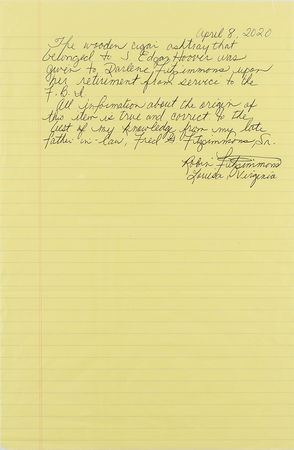 April 8, 2020
The wooden cigar ashtray that
belonged to J Edgar Hoover was
given to Darlene Fitzsimmons upon
her retirement from service to the
F.B.I.
All information about the origin of
this item is true and correct to the
best of my knowledge from my late
Father-in-law, Fred G Fitzsimmons, Sr.
Robin Fitzsimmons
Louisa, Virginia